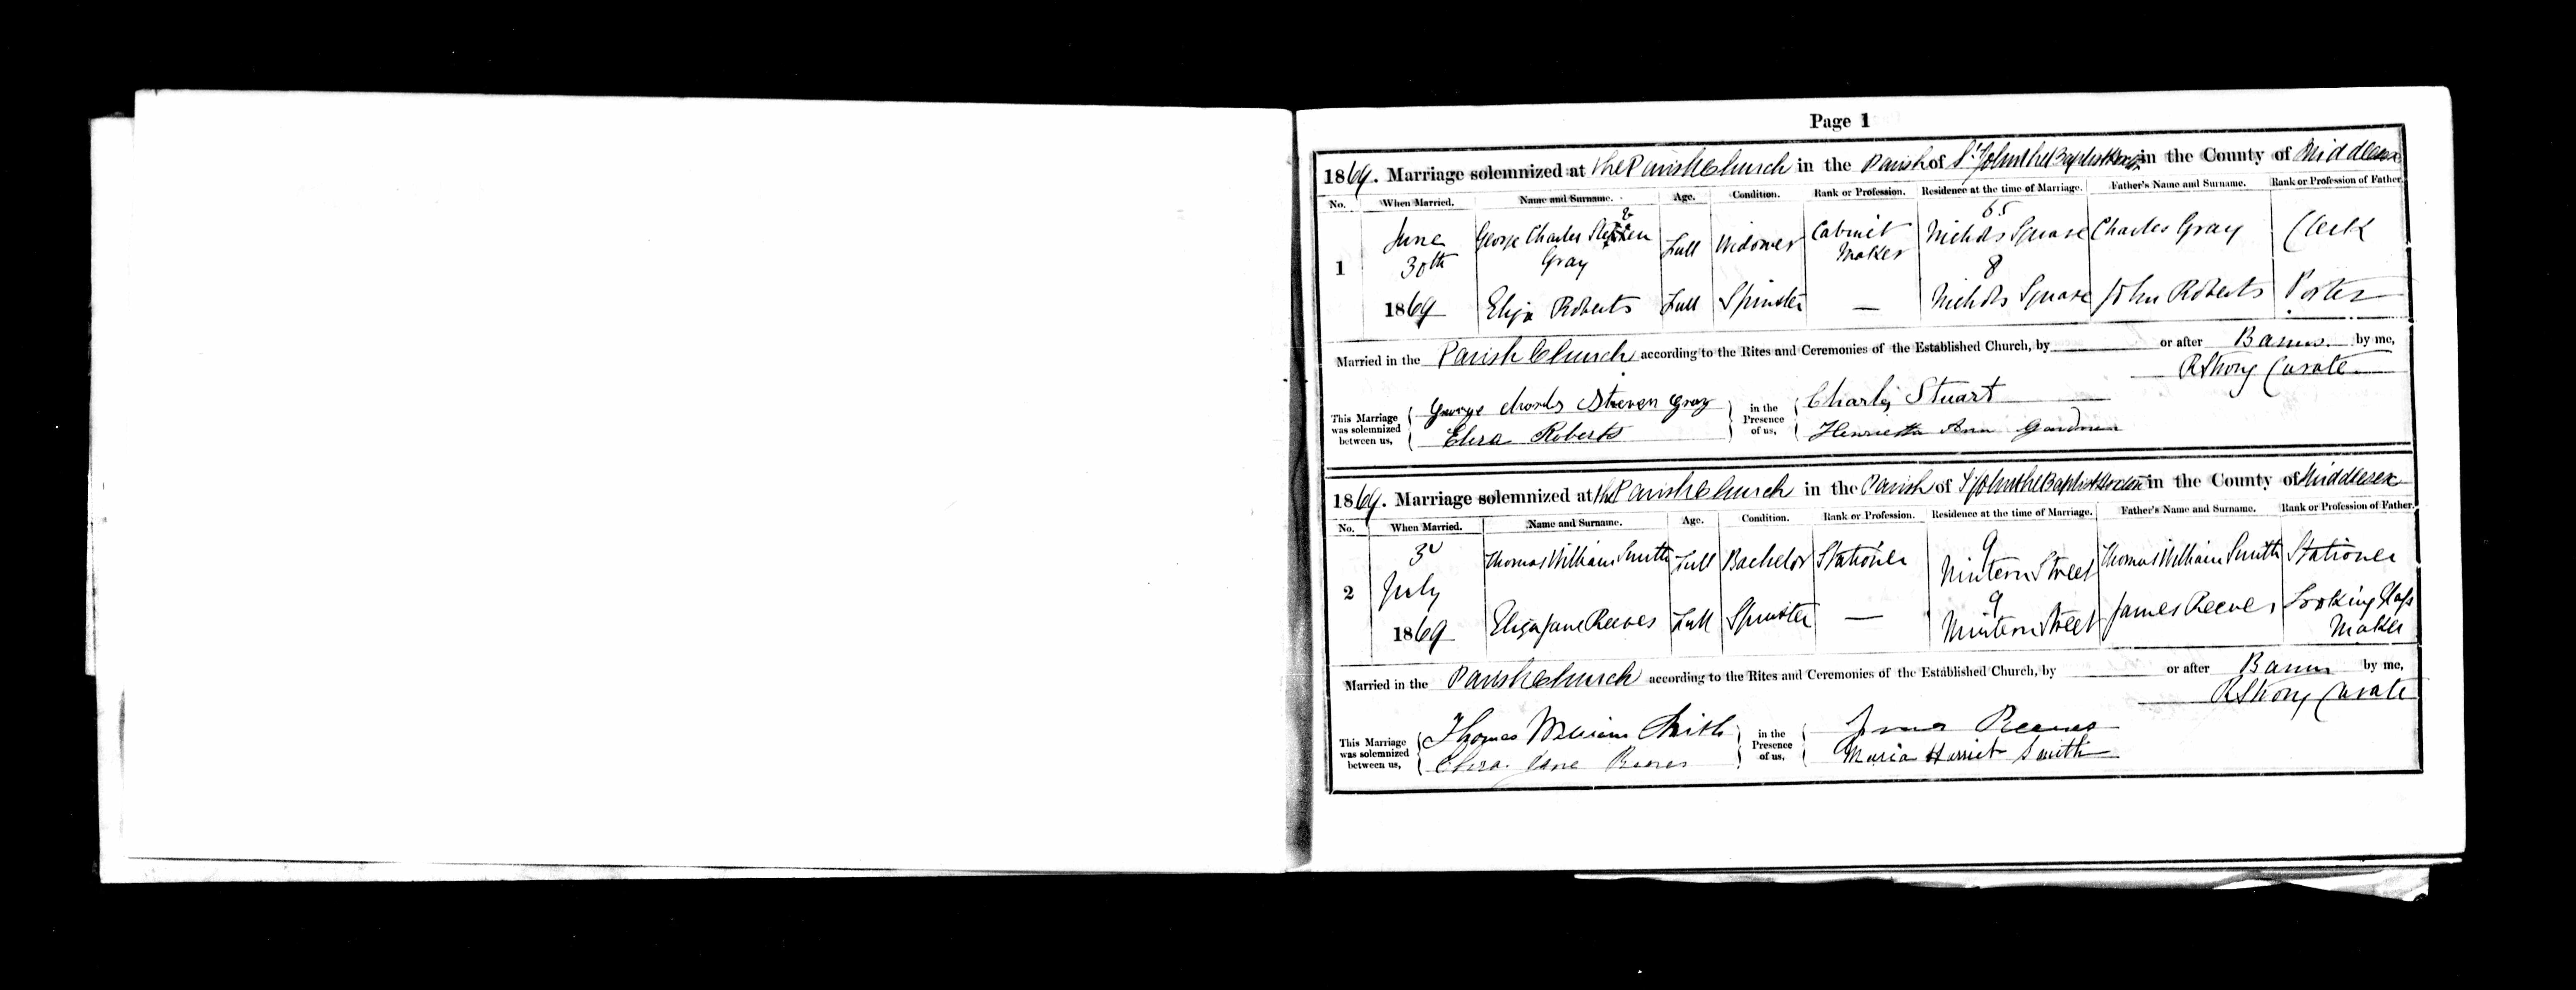 Page 1
1869. Marriage solemnized at the Parish Church in the Parish of St John the Baptist Hoxton in the County of Middlesex
No. When Married. Name and Surname. Age. Condition. Rank or Profession. Residence at the time of Marriage. Father's Name and Surname. Rank or Profession of Father.
1 June 30th 1869 George Charles Gray Full Widower Cabinet Maker 65 Nichols Square Charles Gray Clerk
Eliza Roberts Full Spinster — 8 Nichols Square John Roberts Porter
Married in the Parish Church according to the Rites and Ceremonies of the Established Church, by or after Banns by me,
R Strong Curate
This Marriage was solemnized between us, George Charls Steven Gray in the Presence of us, Charles Stuart
Eliza Roberts Henrietta Ann
1869. Marriage solemnized at the Parish Church in the Parish of St John the Baptist Hoxton in the County of Middlesex
No. When Married. Name and Surname. Age. Condition. Rank or Profession. Residence at the time of Marriage. Father's Name and Surname. Rank or Profession of Father.
2 3d July 1869 Thomas William Smith Full Bachelor Stationer 9 Mintern Street Thomas William Smith Stationer
Eliza Jane Reeves Full Spinster — 9 Mintern Street James Reeves Looking Glass Maker
Married in the Parish Church according to the Rites and Ceremonies of the Established Church, by or after Banns by me,
R Strong Curate
This Marriage was solemnized between us, Thomas William Smith in the Presence of us, James Reeves
Eliza Jane Reeves Maria Harriet Smith